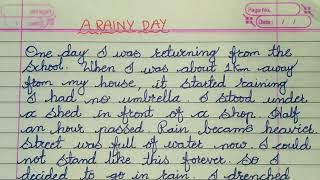 A RAINY DAY
Page No.
Date: / /
One day I was returning from the
school. When I was about 1km away
from my house, it started raining
I had no umbrella. I stood under
a shed in front of a shop. Half
an hour passed Rain became heavier.
Street was full of water now. I could
not stand like this forever. so I
decided to go in rain. I drenched